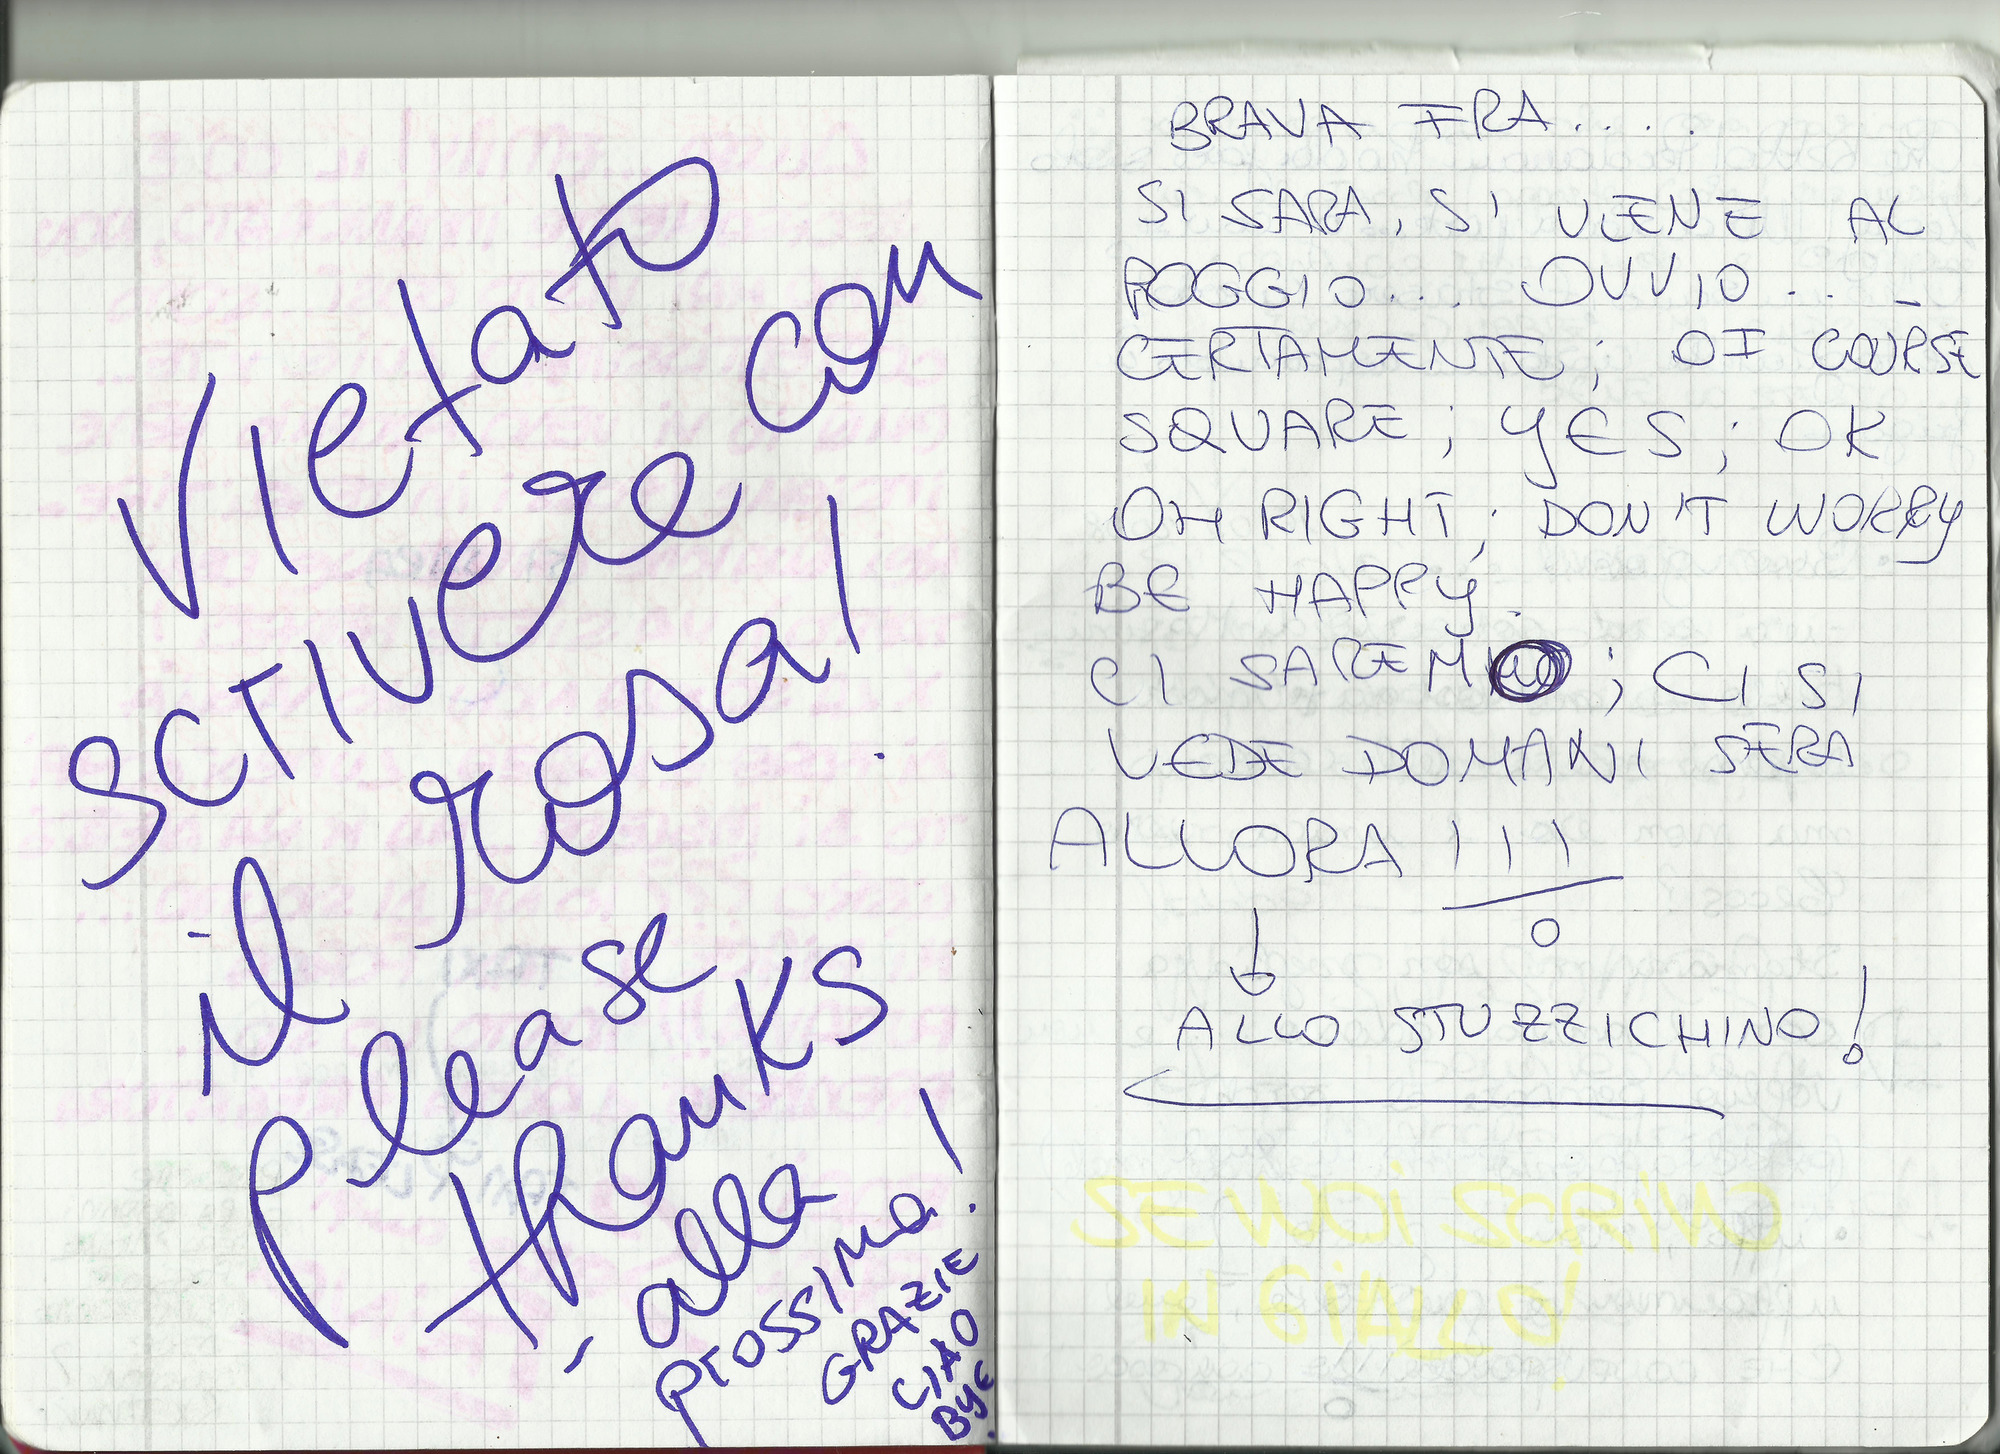 Vietato
scrivere con
il rosa!
please
thanks
- alla
prossima!
GRAZIE
CIAO
BYE.
BRAVA FRA.....
SI SARA, SI VIENE AL
POGGIO.... OVVIO...
CERTAMENTE; OF COURSE
SQUARE; YES; OK
OH RIGHT; DON'T WORRY
BE HAPPY.
CI SAREMO; CI SI
VEDE DOMANI SERA
ALLORA !!!
ALLO STUZZICHINO!
SE VUOI SCRIVO
IN GIALLO!